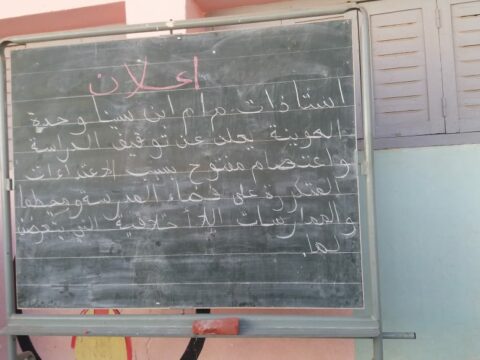 اعلان
استاذات م.م ابن سينا وحدة
العوينة يعلن عن توقيف الدراسة
واعتصام مفتوح بسبب الاعتداءات
المتكررة على فضاء المدرسة ومحيطها
والممارسات اللاأخلاقية التي يتعرضن
لها.